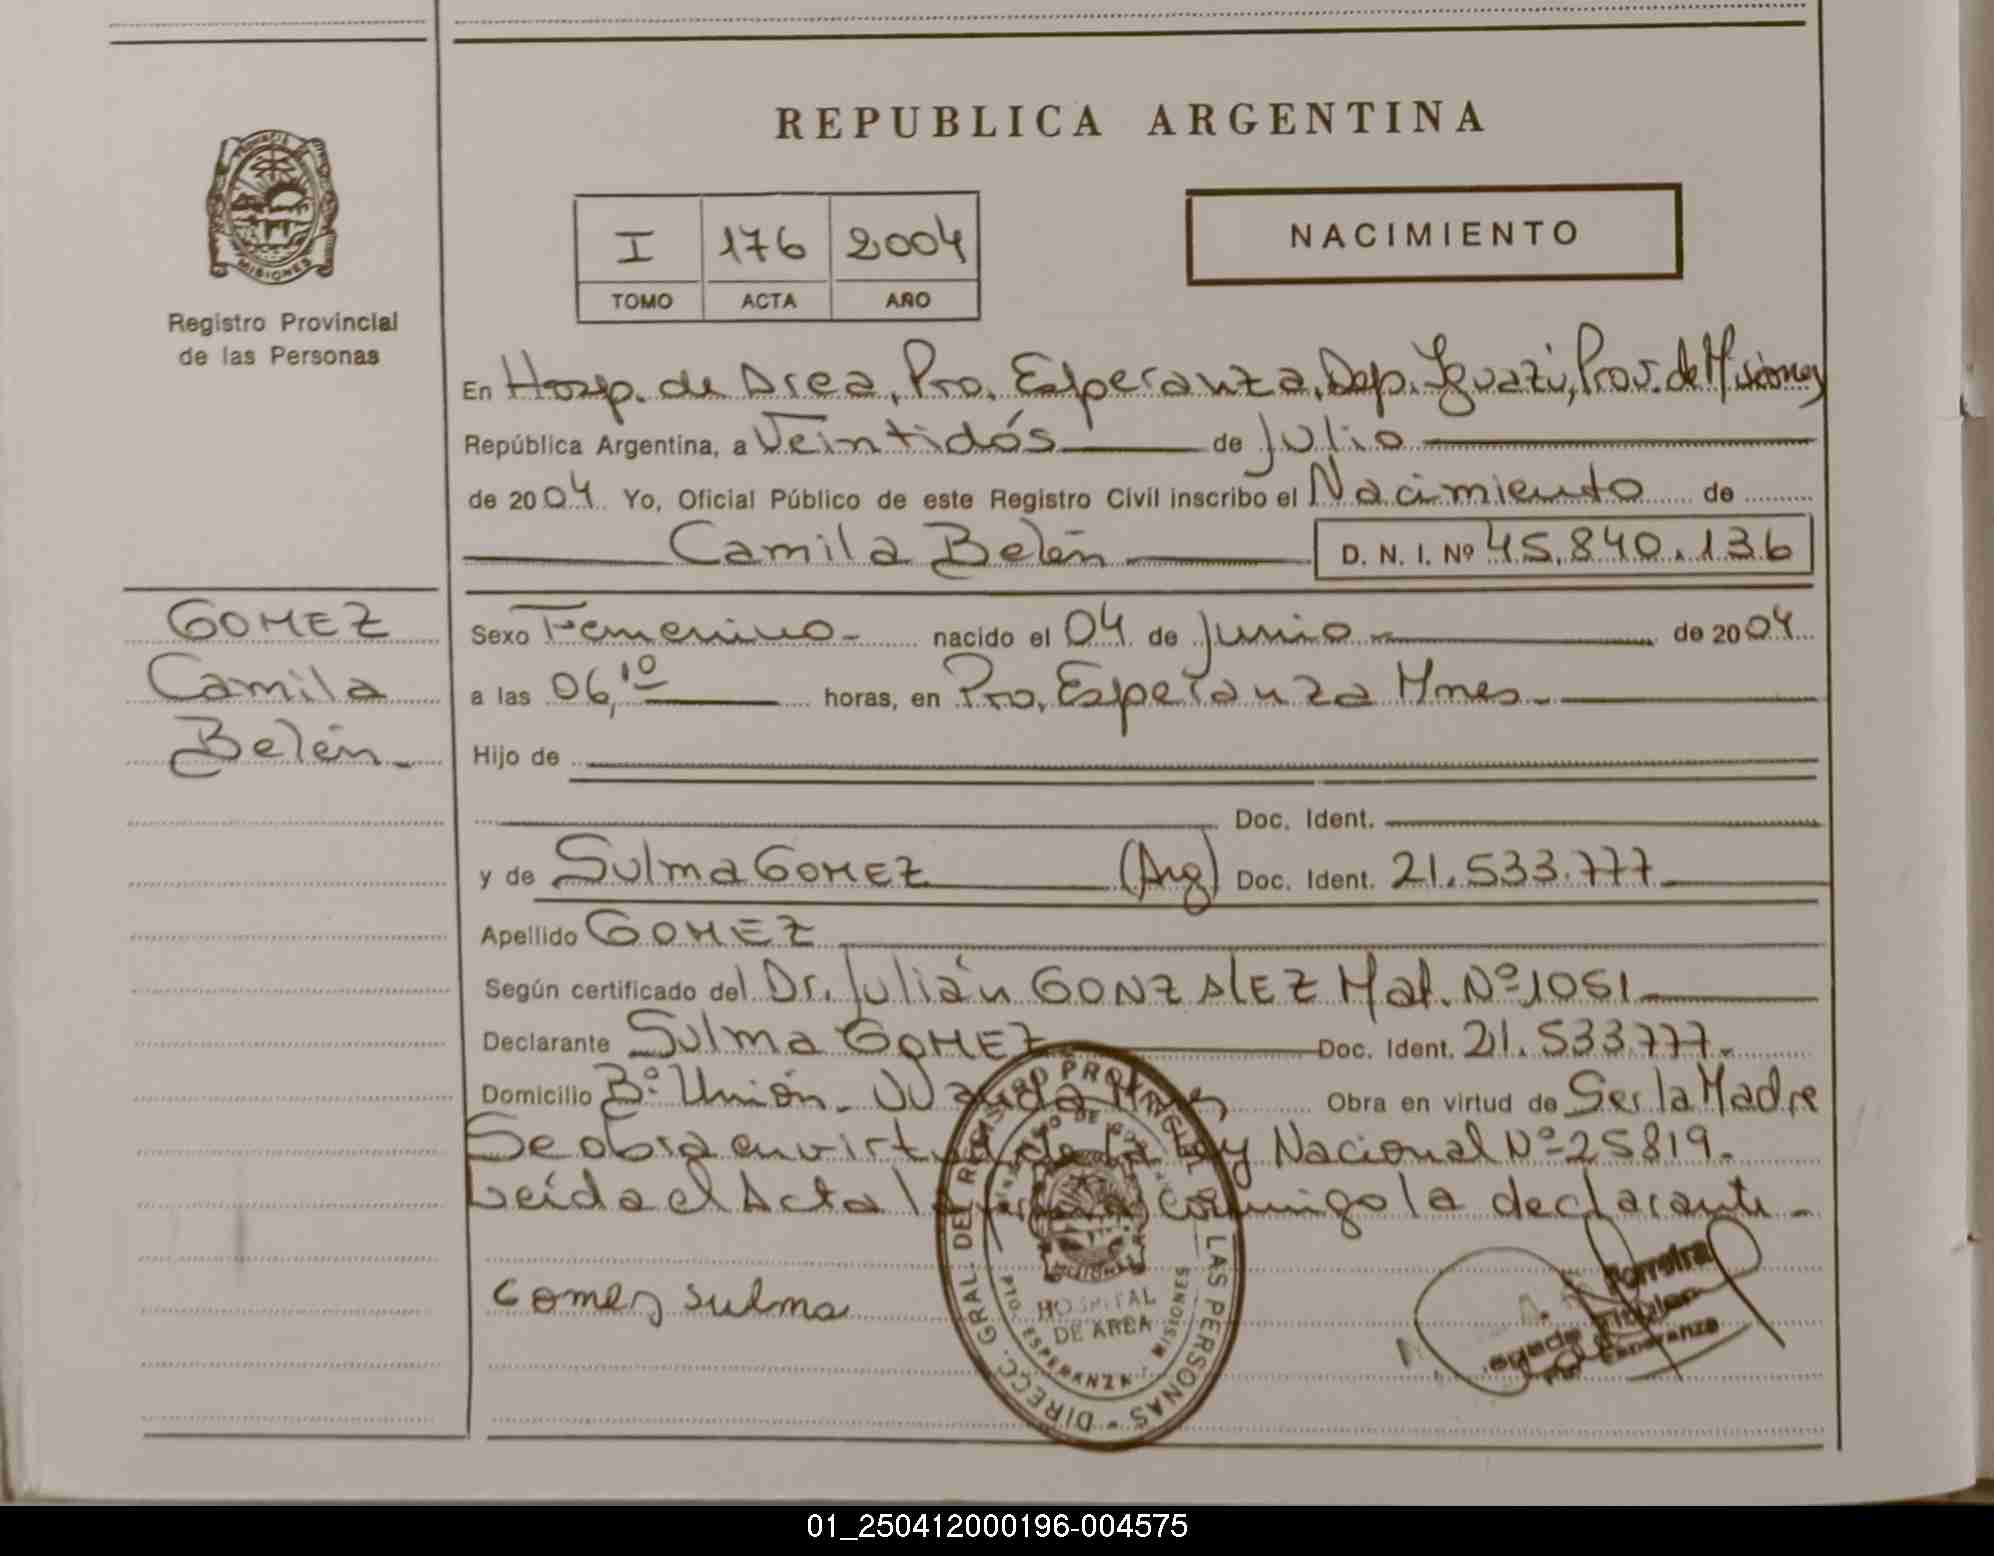 REPUBLICA ARGENTINA
PROVINCIA
MISIONES
Registro Provincial
de las Personas
I 176 2004
TOMO ACTA AÑO
NACIMIENTO
En Hosp. de Area, Pto. Esperanza, Dep. Iguazú, Prov. de Misiones
República Argentina, a Veintidós de Julio
de 2004 Yo, Oficial Público de este Registro Civil inscribo el Nacimiento de
Camila Belén D. N. I. Nº 45.840.136
GOMEZ
Camila
Belén
Sexo Femenino nacido el 04 de Junio de 2004
a las 06,10 horas, en Pto. Esperanza Mnes
Hijo de
Doc. Ident.
y de Sulma GOMEZ (Arg) Doc. Ident. 21.533.777
Apellido GOMEZ
Según certificado del Dr. Julián GONZALEZ Mat. Nº 1051
Declarante Sulma GOMEZ Doc. Ident. 21.533.777.
Domicilio Bº Unión - Wanda Mnes Obra en virtud de Ser la Madre
Se obra en virtud de la Ley Nacional Nº 25819.
Leída el Acta la firma conmigo la declarante -
Gomez sulma
DIRECC. GRAL. DEL REGISTRO PROVINCIAL DE LAS PERSONAS
HOSPITAL
DE AREA
PTO. ESPERANZA - MISIONES
Ferreira
Titular
Esperanza
01_250412000196-004575